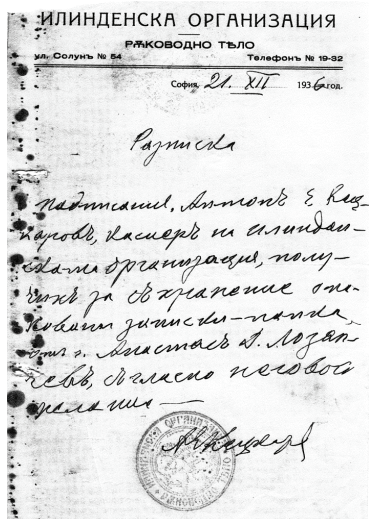 ИЛИНДЕНСКА ОРГАНИЗАЦИЯ
РѪКОВОДНО ТѢЛО
ул. Солунъ № 54 Телефонъ № 19-32
София, 21. XII 1936 год.
Разписка
Подписания, Антонъ Е. Кец-
каровъ, касиеръ на Илинден-
ската организация, полу-
чихъ за съхранение опа-
ковани записки-папка,
отъ г. Анастасъ Д. Лозан-
чевъ, съгласно неговото
желание
ИЛИНДЕНСКА ОРГАНИЗАЦИЯ